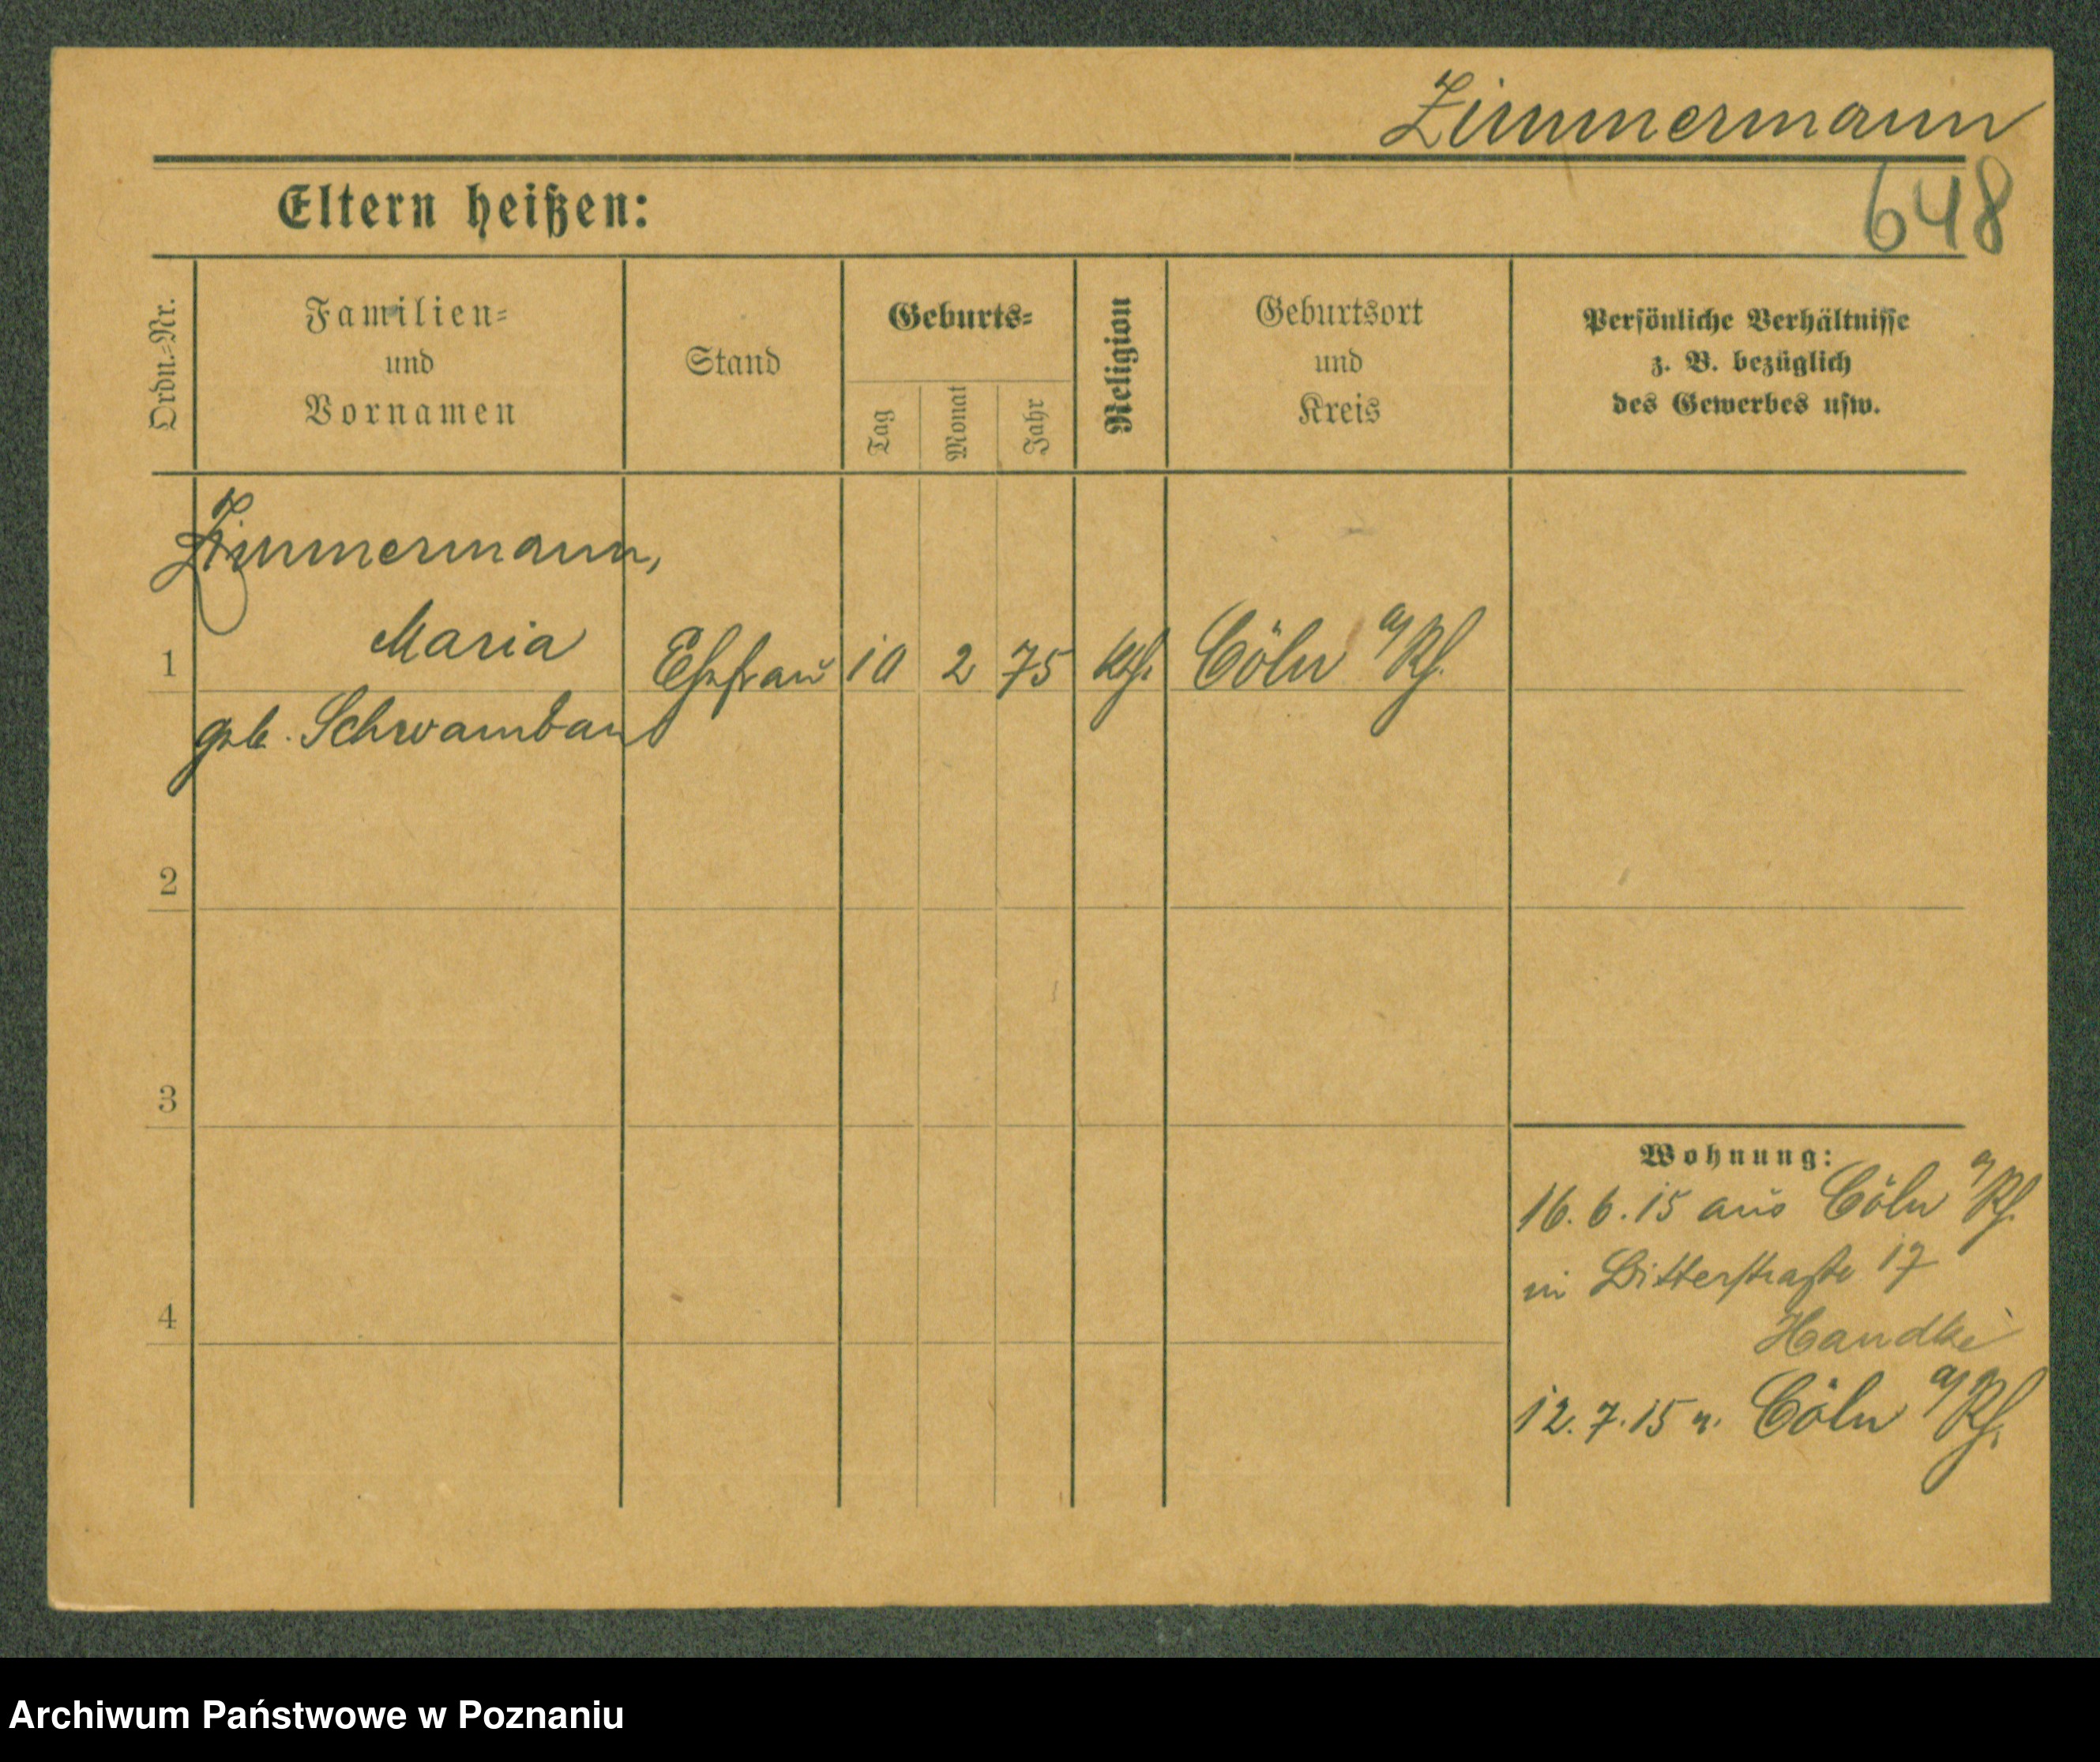 Zimmermann
648
Eltern heißen:
Ordn.-Nr.
Familien-
und
Vornamen
Stand
Geburts-
Tag
Monat
Jahr
Religion
Geburtsort
und
Kreis
Persönliche Verhältnisse
z. B. bezüglich
des Gewerbes usw.
Zimmermann,
Maria
1 Ehefrau 10 2 75 kth. Cöln a/Rh.
geb. Schwamban
2
3
4
Wohnung:
16. 6. 15 aus Cöln a/Rh.
in Bitterstraße 17
Handke
12. 7. 15 n. Cöln a/Rh.
Archiwum Państwowe w Poznaniu